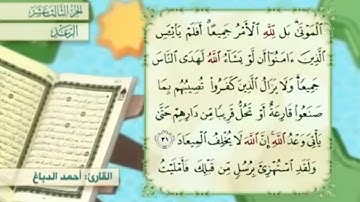 الجزء الثالث عشر
الرعد
ٱلْمَوْتَىٰ ۗ بَل لِّلَّهِ ٱلْأَمْرُ جَمِيعًا ۗ أَفَلَمْ يَا۟يْـَٔسِ
ٱلَّذِينَ ءَامَنُوٓا۟ أَن لَّوْ يَشَآءُ ٱللَّهُ لَهَدَى ٱلنَّاسَ
جَمِيعًا ۗ وَلَا يَزَالُ ٱلَّذِينَ كَفَرُوا۟ تُصِيبُهُم بِمَا
صَنَعُوا۟ قَارِعَةٌ أَوْ تَحُلُّ قَرِيبًا مِّن دَارِهِمْ حَتَّىٰ
يَأْتِىَ وَعْدُ ٱللَّهِ ۚ إِنَّ ٱللَّهَ لَا يُخْلِفُ ٱلْمِيعَادَ ٣١
وَلَقَدِ ٱسْتُهْزِئَ بِرُسُلٍ مِّن قَبْلِكَ فَأَمْلَيْتُ
القارئ: أحمد الدباغ